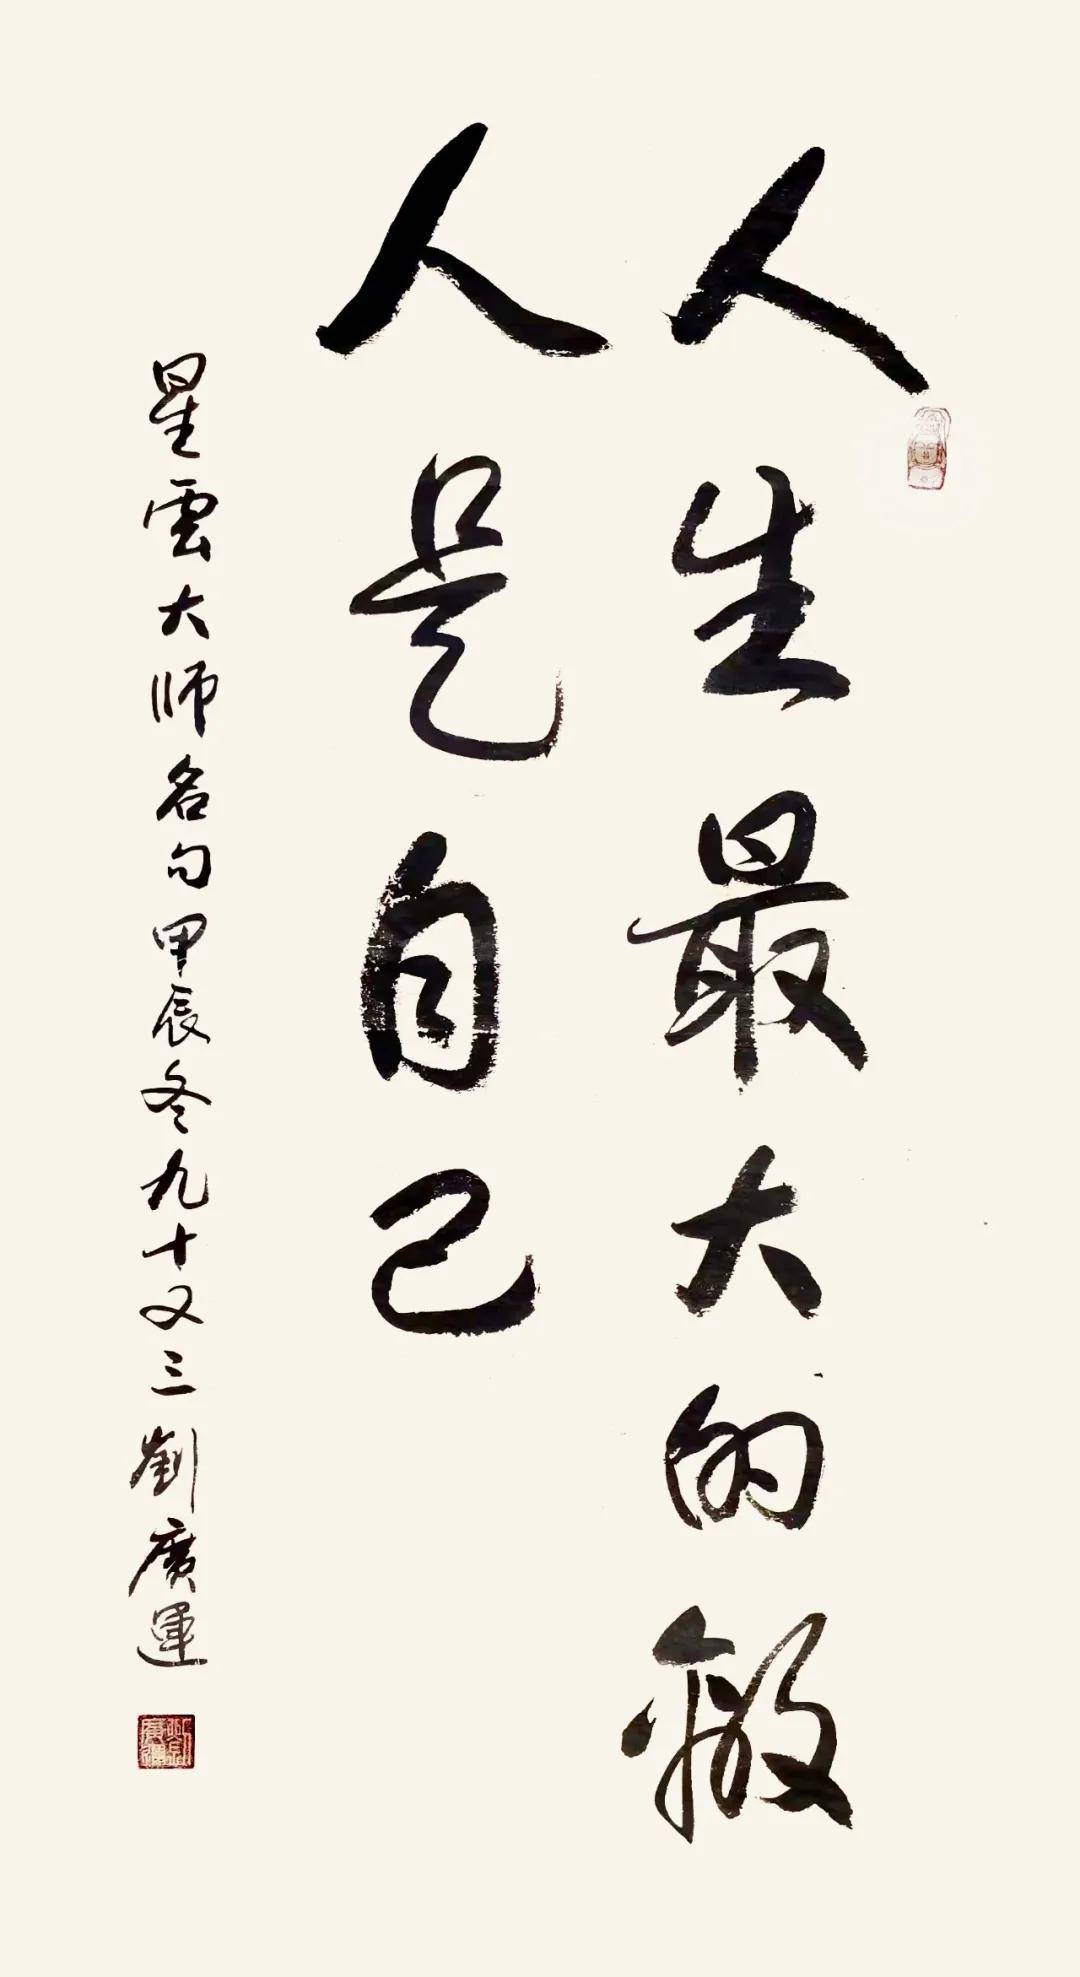 人生最大的敵
人是自己
星雲大师名句甲辰冬九十又三劉廣運